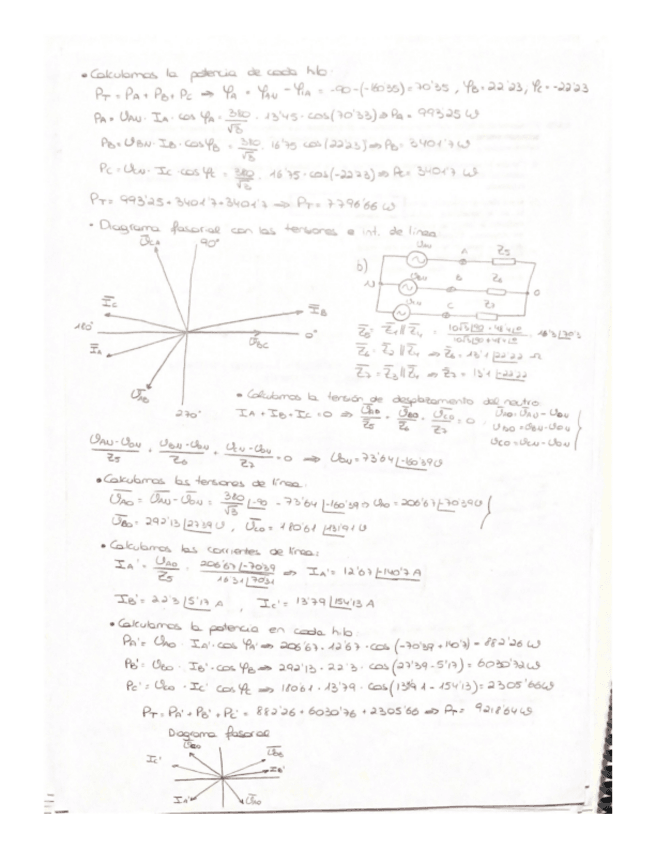 • Calculamos la potencia de cada hilo:
P_T = P_A + P_B + P_C ⇒ φ_A = φ_AN - φ_IA = -90 - (-160'35) = 70'35 , φ_B = 22'23 , φ_C = -22'23
P_A = U_AN · I_A · cos φ_A = 380/√3 · 13'45 · cos(70'33) ⇒ P_A = 993'25 W
P_B = U_BN · I_B · cos φ_B = 380/√3 · 16'75 cos(22'23) ⇒ P_B = 3401'7 W
P_C = U_CN · I_C · cos φ_C = 380/√3 · 16'75 · cos(-22'23) ⇒ P_C = 3401'7 W
P_T = 993'25 + 3401'7 + 3401'7 ⇒ P_T = 7796'66 W
• Diagrama fasorial con las tensiones e int. de linea
U_CA 90°
I_C I_B
180° 0°
I_A U_BC
U_AB
270°
b)
U_AN A Z_5
N U_BN B Z_6 0
U_CN C Z_7
Z_5 = Z_1 ∥ Z_4 =
Z_6 = Z_2 ∥ Z_4 ⇒ Z_6 = 13'1 |22'22 Ω
Z_7 = Z_3 ∥ Z_4 ⇒ Z_7 = 13'1 |-22'22
• Calculamos la tensión de desplazamiento del neutro:
I_A + I_B + I_C = 0 ⇒ U_AO/Z_5 + U_BO/Z_6 + U_CO/Z_7 = 0
U_AO = U_AN - U_ON
U_BO = U_BN - U_ON
U_CO = U_CN - U_ON
(U_AN - U_ON)/Z_5 + (U_BN - U_ON)/Z_6 + (U_CN - U_ON)/Z_7 = 0 ⇒ U_ON = 73'64 |-160'39 V
• Calculamos las tensiones de línea:
U_AO = U_AN - U_ON = 380/√3 |-90 - 73'64 |-160'39 ⇒ U_AO = 206'67 |-70'39 V
U_BO = 292'13 |27'39 V , U_CO = 180'61 |131'91 V
• Calculamos las corrientes de línea:
I_A' = U_AO/Z_5 = 206'67 |-70'39 / 16'31 |70'31 ⇒ I_A' = 12'67 |-140'7 A
I_B' = 22'3 |5'17 A , I_C' = 13'79 |154'13 A
• Calculamos la potencia en cada hilo:
P_A' = U_AO · I_A' · cos φ_A' ⇒ 206'67 · 12'67 · cos(-70'39 + 140'7) = 882'26 W
P_B' = U_BO · I_B' · cos φ_B ⇒ 292'13 · 22'3 · cos(27'39 - 5'17) = 6030'72 W
P_C' = U_CO · I_C' cos φ_C ⇒ 180'61 · 13'79 · cos(131'91 - 154'13) = 2305'66 W
P_T = P_A' + P_B' + P_C' = 882'26 + 6030'76 + 2305'66 ⇒ P_T = 9218'64 W
Diagrama fasorial
I_C' I_B'
I_A' U_AO